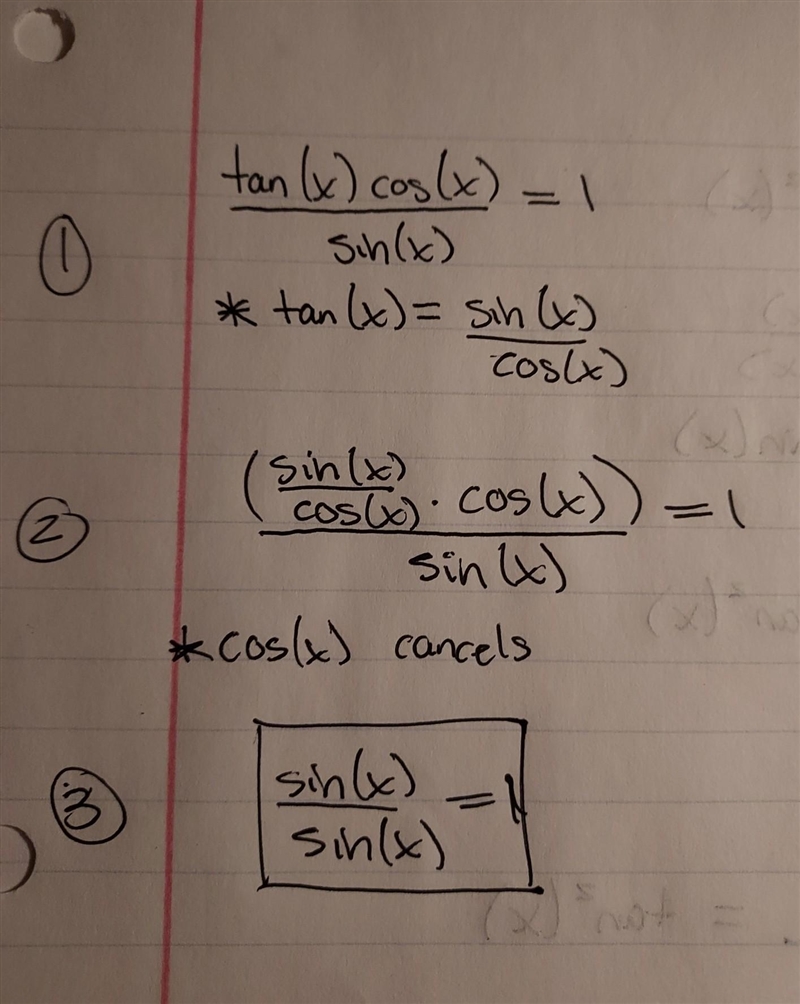 ① tan(x) cos(x) / sin(x) = 1
* tan(x) = sin(x) / cos(x)
② (sin(x) / cos(x) · cos(x)) / sin(x) = 1
* cos(x) cancels
③ sin(x) / sin(x) = 1